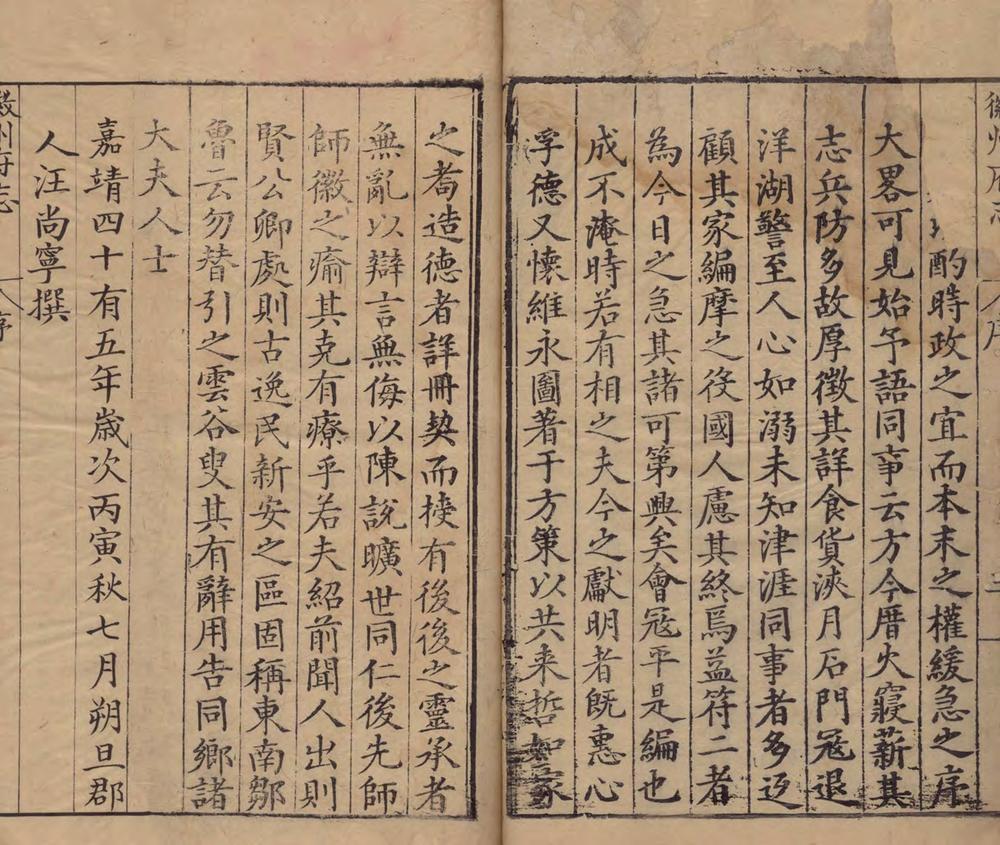 徽州府志
酌時政之宜而本末之權緩急之序
大畧可見始予語同事云方今厝火寢薪其
志兵防多故厚徵其詳食貨浹月石門寇退
洋湖警至人心如溺未知津涯同事者多迓
顧其家編摩之役國人慮其終焉益符二者
為今日之急其諸可第興矣會寇平是編也
成不淹時若有相之夫今之獻明者既惠心
孚德又懷維永圖著于方策以共来哲如家
之耇造德者詳冊契而捿有後後之靈承者
無亂以辯言無侮以陳說曠世同仁後先師
師徽之瘉其克有瘳乎若夫紹前聞人出則
賢公卿處則古逸民新安之區固稱東南鄒
魯云勿替引之雲谷叟其有辭用告同鄉諸
大夫人士
嘉靖四十有五年歲次丙寅秋七月朔旦郡
人汪尚寧撰
徽州府志
序